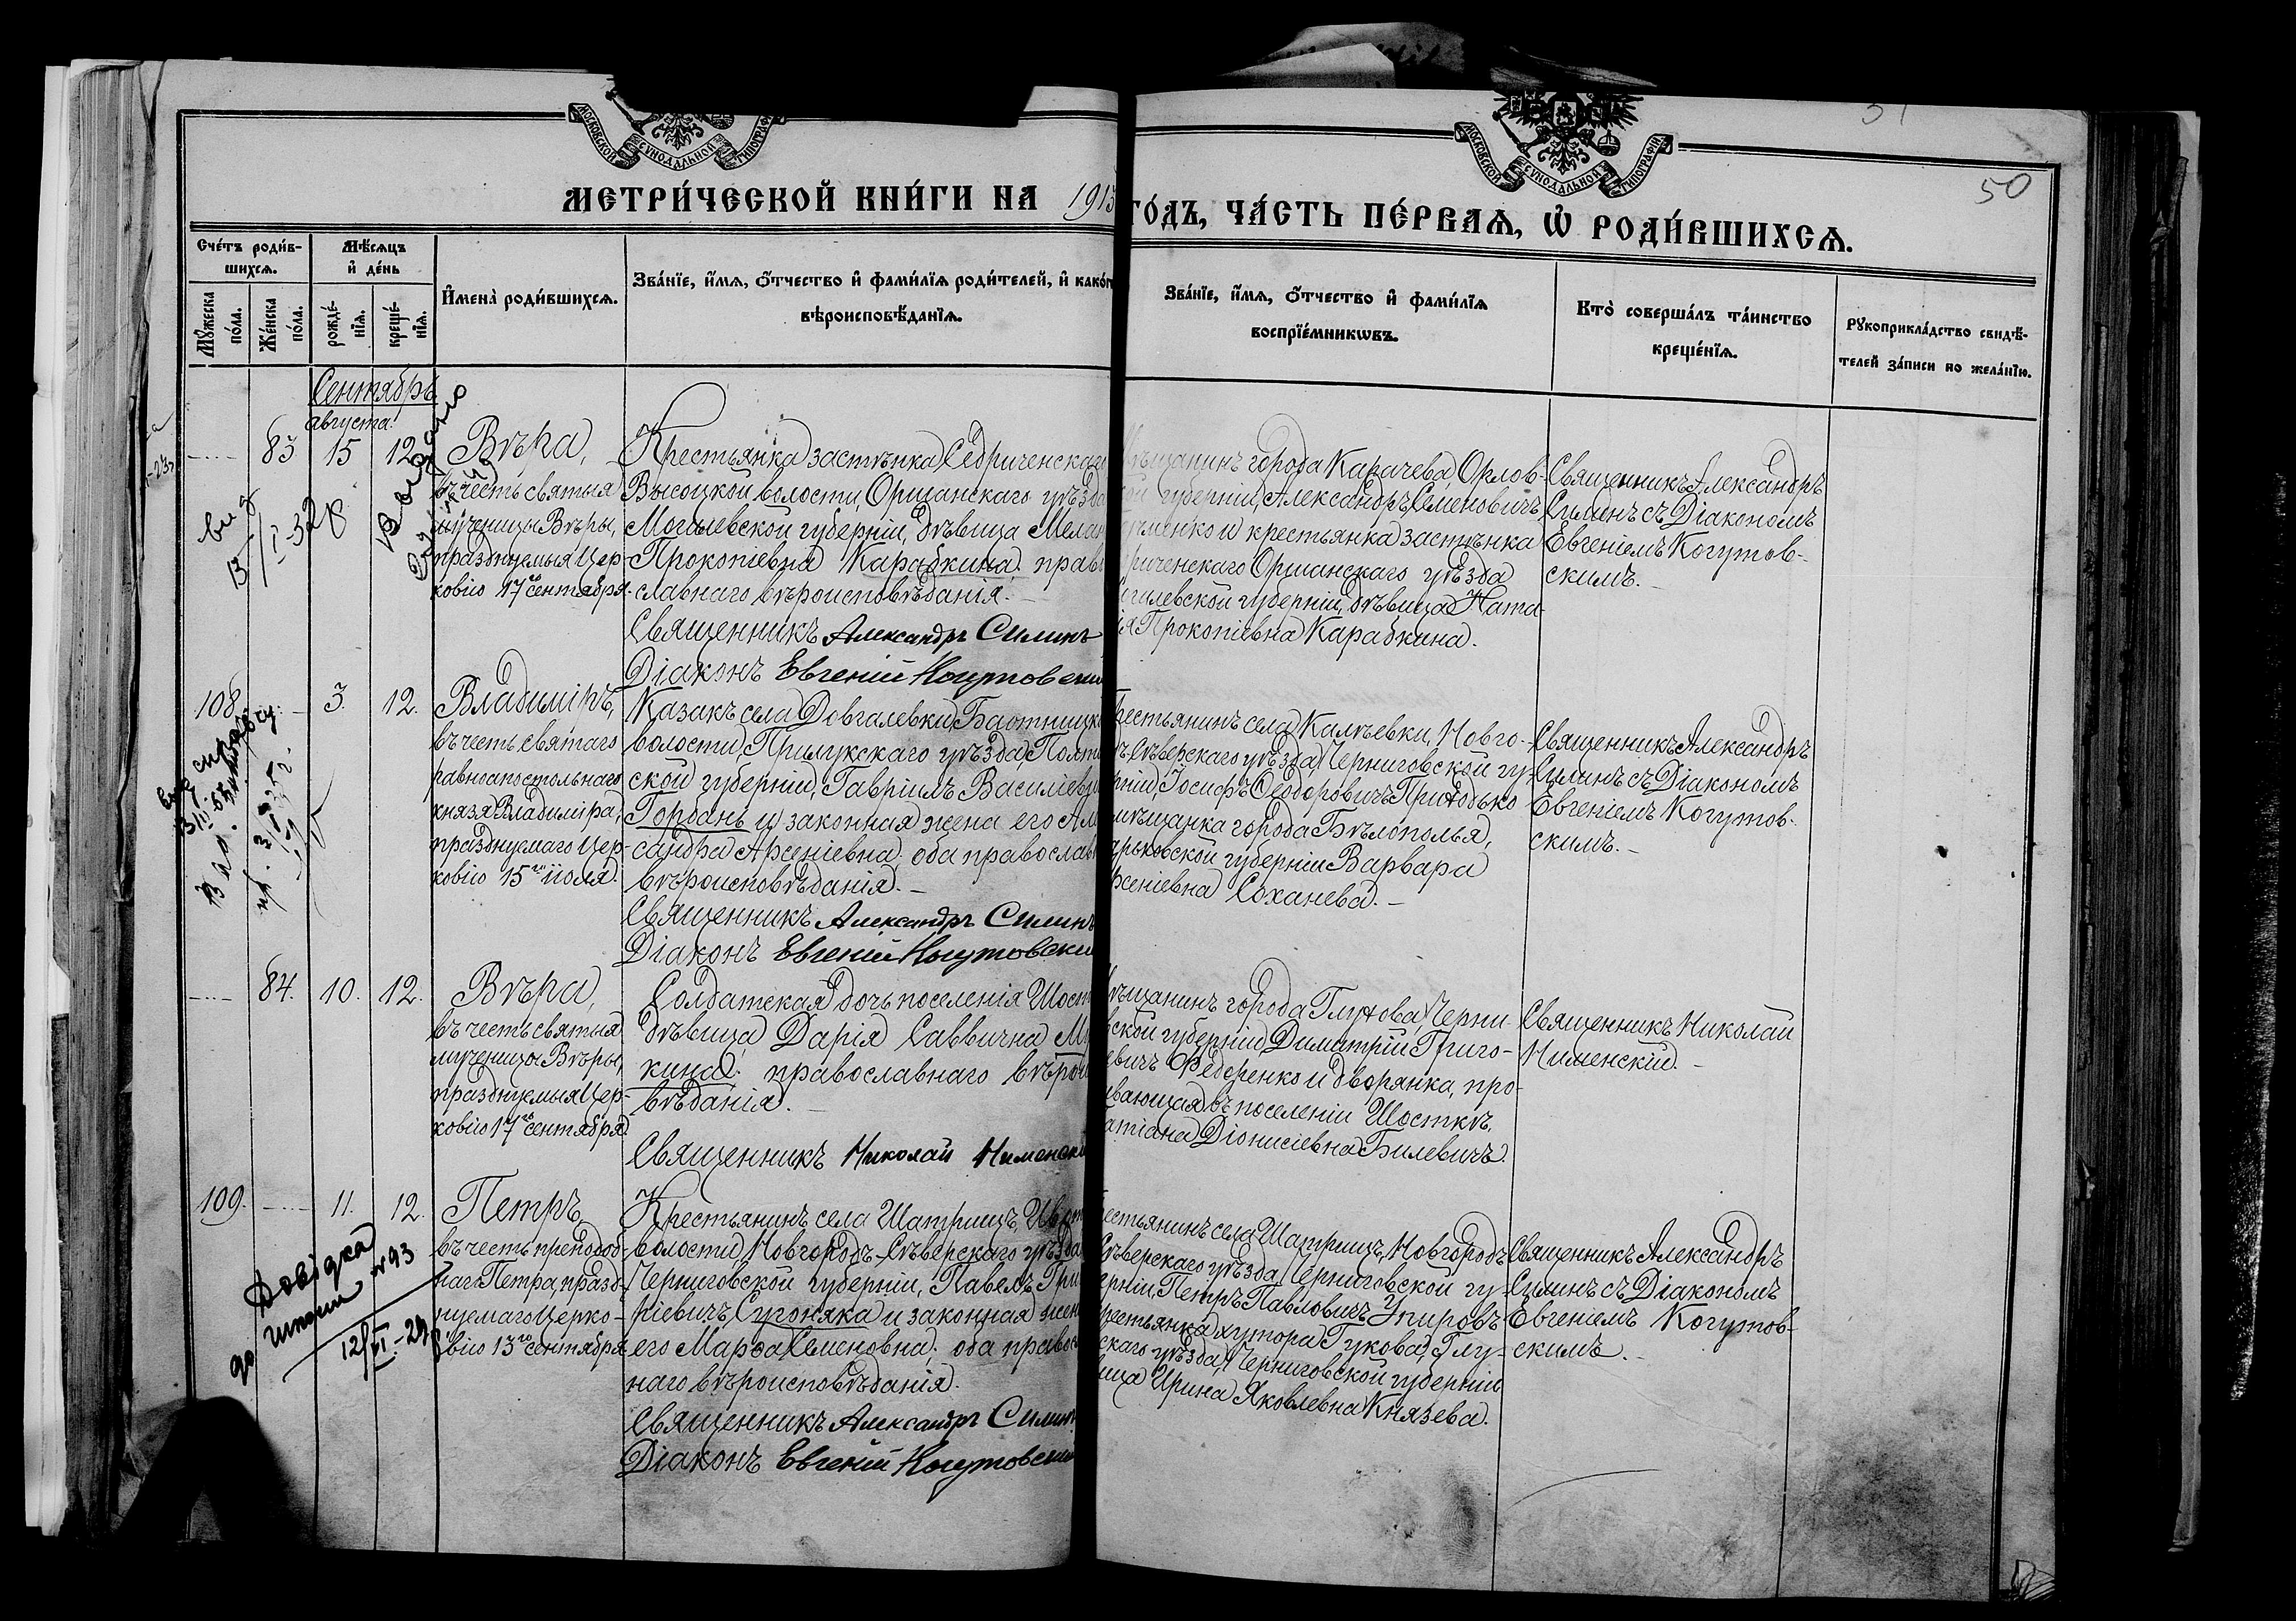 МОСКОВСКОЙ СѴНОДАЛЬНОЙ ТИПОГРАФІИ
МОСКОВСКОЙ СѴНОДАЛЬНОЙ ТИПОГРАФІИ
50
МЕТРИ́ЧЕСКОЙ КНИ́ГИ НА 1913
ГО́ДЪ, ЧА́СТЬ ПЕ́РВАѦ, Ѡ РОДИ́ВШИХСѦ.
Сче́тъ роди́в-
шихсѧ.
Мѣ́сѧцъ
и де́нь
Мꙋ́жеска
по́ла.
Же́нска
по́ла.
рожде́-
нїѧ.
креще́-
нїѧ.
Имена̀ роди́вшихсѧ.
Зва́нїе, и́мѧ, о́тчество и фами́лїѧ роди́телей, и како́г
вѣроисповѣ́данїѧ.
Зва́нїе, и́мѧ, о́тчество и фами́лїѧ
воспрїе́мникѡвъ.
Кто̀ соверша́лъ та́инство
креще́нїѧ.
Рꙋкоприкла́дство свидѣ́-
телей за́писи по жела́нїю.
Сентябрь
августа
83 15 12 Вѣра,
въ честь святыя
мученицы Вѣры,
празднуемыя Цер-
ковію 17го сентября.
Крестьянка застѣнка Седриченскаг
Высоцкой волости, Оршанскаго уѣзда
Могилевской губерніи, дѣвица Мелан
Прокопіевна Карабкина; право
славнаго вѣроисповѣданія.
Священникъ Александръ Силинъ
Діаконъ Евгеній Когутовскій
ѣщанинъ города Карачева, Орлов-
ой губерніи, Александръ Семеновичъ
и крестьянка застѣнка
риченскаго Оршанскаго уѣзда
гилевской губерніи, дѣвица Ната-
ія Прокопіевна Карабкина.
Священникъ Александръ
Силинъ съ Діакономъ
Евгеніемъ Когутов-
скимъ.
108. 3. 12. Владиміръ,
въ честь святаго
равноапостольнаго
князя Владиміра,
празднуемаго Цер-
ковію 15го іюля.
Казакъ села Довгалевки,
волости, Прилукскаго уѣзда, Полта
ской губерніи, Гавріилъ Василіеви
Горбань и законная жена его Але
сандра Арсеніевна; оба православ
вѣроисповѣданія.
Священникъ Александръ Силинъ
Діаконъ Евгеній Когутовскій
рестьянинъ села Калѣевки, Новго-
ъ-Сѣверскаго уѣзда, Черниговской гу-
рніи, Іосифъ Ѳеодоровичъ Приходько
мѣщанка города Бѣлополья,
арьковской губерніи Варвара
рсеніевна Соханева.
Священникъ Александръ
Силинъ съ Діакономъ
Евгеніемъ Когутов-
скимъ.
84. 10. 12. Вѣра,
въ честь святыя
мученицы Вѣры,
празднуемыя Цер-
ковію 17го сентября.
Солдатская дочь поселенія Шост
дѣвица Дарія Саввична М
кина; православнаго вѣрои
вѣданія.
Священникъ Николай Нименскі
ѣщанинъ города Глухова, Черни-
вской губерніи Димитрій Григо-
евичъ Федоренко и дворянка, про-
ивающая въ поселеніи Шосткѣ,
атіана Діонисіевна Билевичъ.
Священникъ Николай
Нименскій.
109. 11. 12. Петръ,
въ честь преподоб-
наго Петра, празд-
нуемаго Церко-
вію 13го сентября.
Крестьянинъ села Шатрищъ,
волости, Новгородъ-Сѣверскаго уѣзда,
Черниговской губерніи, Павелъ Гри
ріевичъ Сугоняка и законная жен
его Марѳа Семеновна; оба правос
наго вѣроисповѣданія.
Священникъ Александръ Силинъ
Діаконъ Евгеній Когутовскій
рестьянинъ села Шатрищъ, Новгородъ-
Сѣверскаго уѣзда, Черниговской гу-
ерніи, Петръ Павловичъ Упировъ
рестьянка хутора Гукова, Глу-
скаго уѣзда, Черниговской губерніи
ица Ирина Яковлевна Князева.
Священникъ Александръ
Силинъ съ Діакономъ
Евгеніемъ Когутов-
скимъ.
Довідка
до школи № 93
12/VI-29